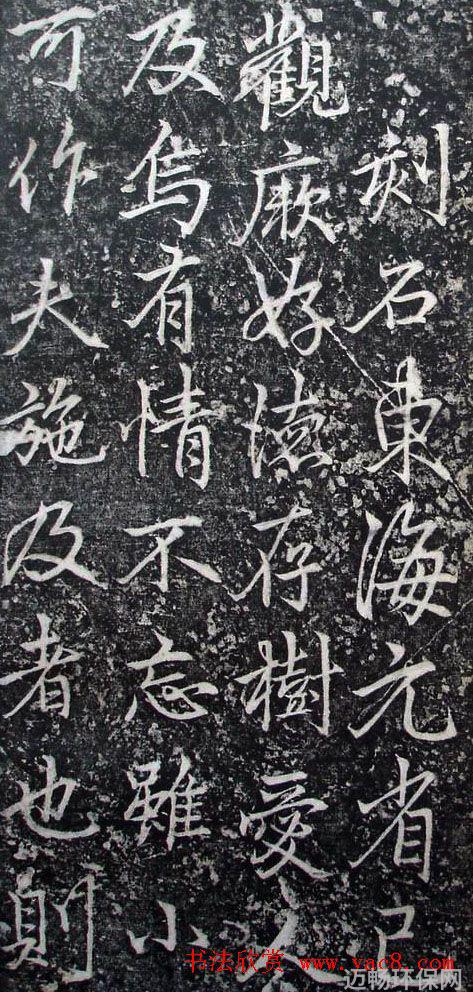 刻石東海元省己
觀厥好德存樹愛人
及烏有情不忘雖小
可作夫施及者也則
书法欣赏 www.yac8.com
迈畅环保网